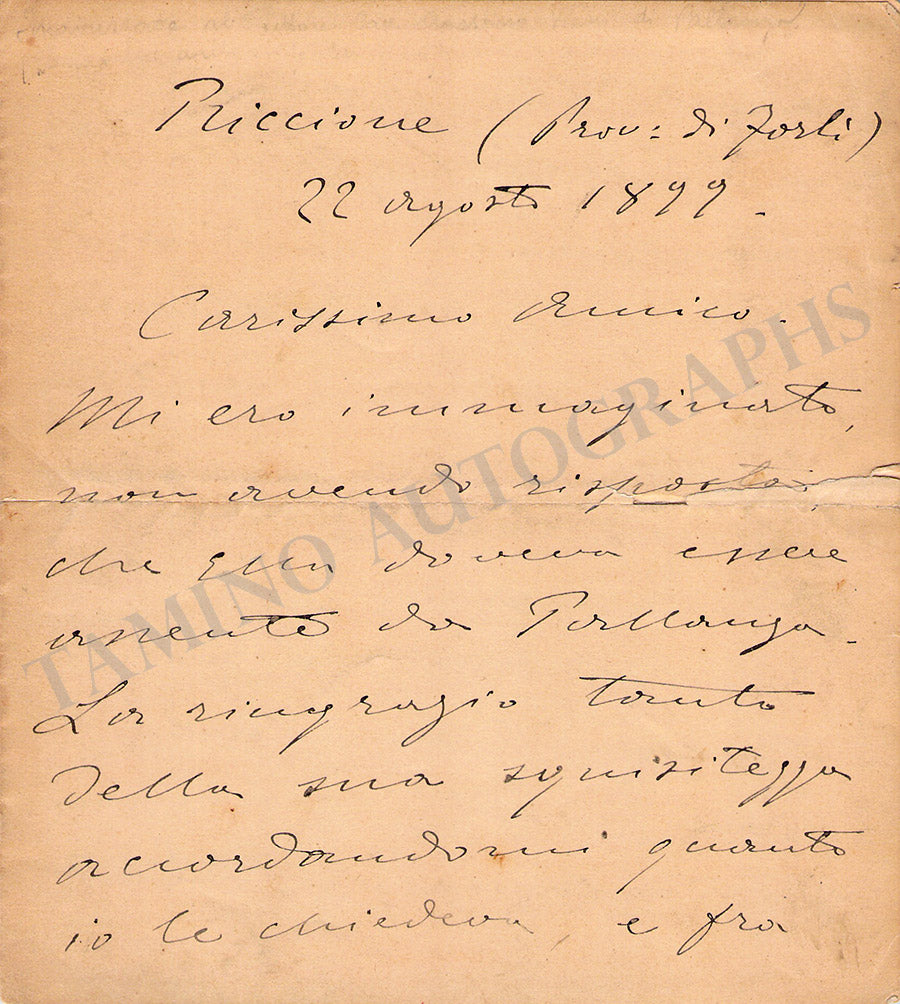 Riccione (Prov: di Forlì)
22 agosto 1899.
Carissimo amico.
Mi ero immaginato,
non avendo risposta,
che Ella doveva essere
assente da Pallanza.
La ringrazio tanto
della sua squisitezza
accordandomi quanto
io le chiedeva, e fra
TAMINO AUTOGRAPHS